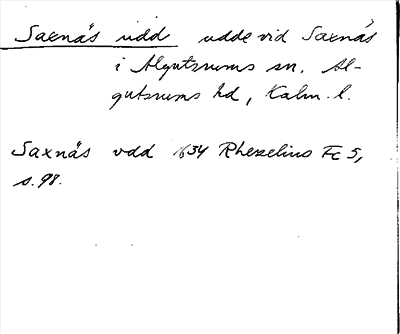 Saxnäs udd udde vid Saxnäs
i Algutsrums sn. Al-
gutsrums hd, Kalm. l.
Saxnäs vdd 1634 Rhezelius Fc 5,
s. 98.